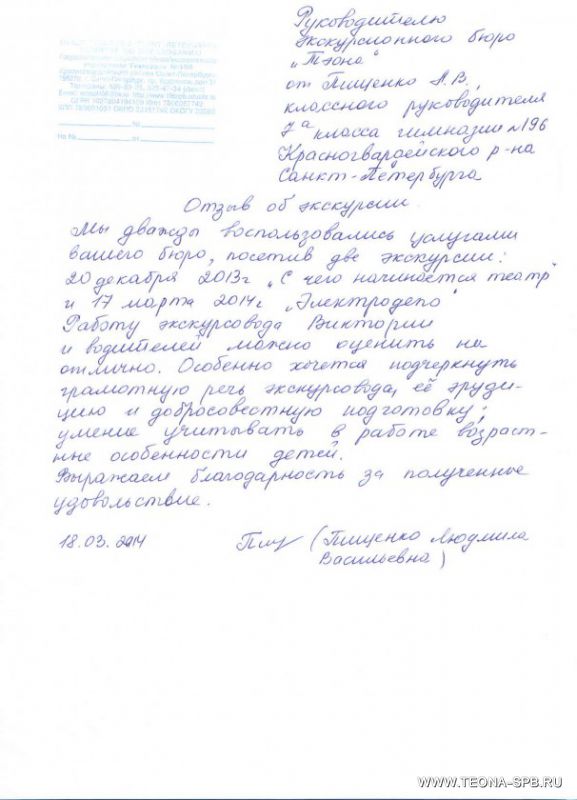 Руководителю
экскурсионного бюро
„Тэона"
от Пищенко Л.В.,
классного руководителя
7 а класса гимназии №196
Красногвардейского р-на
Санкт-Петербурга
№
На № от
Отзыв об экскурсии.
Мы дважды воспользовались услугами
вашего бюро, посетив две экскурсии:
20 декабря 2013г „С чего начинается театр"
и 17 марта 2014г. „Электродепо"
Работу экскурсовода Виктории
и водителей можно оценить на
отлично. Особенно хочется подчеркнуть
грамотную речь экскурсовода, её эруди-
цию и добросовестную подготовку;
умение учитывать в работе возраст-
ные особенности детей.
Выражаем благодарность за полученное
удовольствие.
18.03.2014 (Пищенко Людмила
Васильевна)
WWW.TEONA-SPB.RU